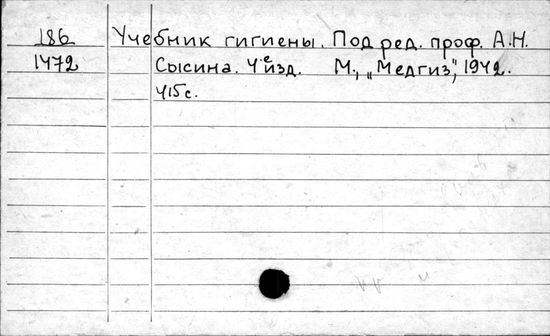 186 Учебник гигиены. Под ред. проф. А.Н.
1472 Сысина. 4е изд. М., „Медгиз", 1942.
415 с.